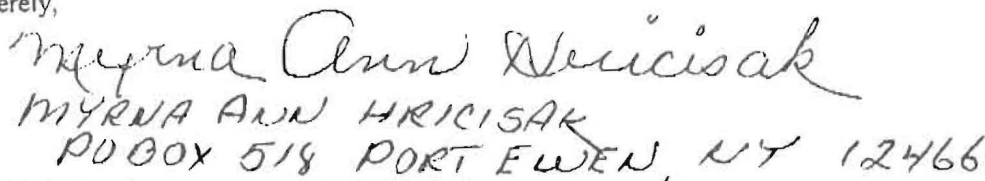 erely,
Myrna Ann Hricisak
MYRNA ANN HRICISAK
PO BOX 518 PORT EWEN, NY 12466